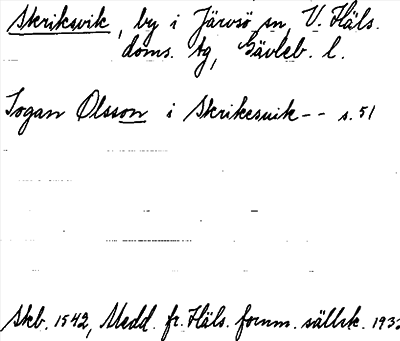 Skriksvik, by i Järvsö sn, V. Häls.
doms. tg, Gävleb. l.
Jogan Olsson i Skrikesuik-- s. 51
Skb. 1542, Medd. fr. Häls. fornm. sällsk. 1932